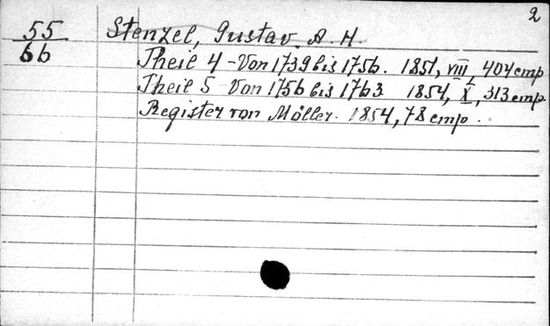 2
55 Stenzel, Gustav. A. H.
66 Theil 4 - Von 1739 bis 1756. 1851, VIII, 404 emp
Theil 5 Von 1756 bis 1763 1854, X, 313 emp.
Register von Möller. 1854, 78 emp.